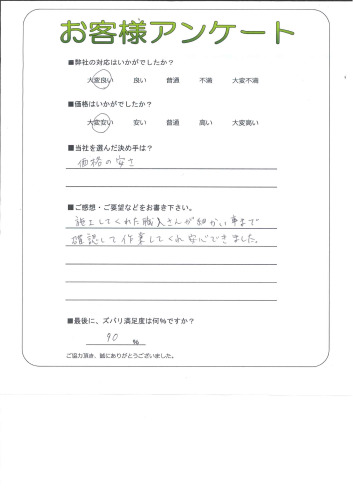 お客様アンケート
■弊社の対応はいかがでしたか？
大変良い 良い 普通 不満 大変不満
■価格はいかがでしたか？
大変安い 安い 普通 高い 大変高い
■当社を選んだ決め手は？
価格の安さ
■ご感想・ご要望などをお書き下さい。
施工してくれた職人さんが細かい事まで
確認して作業してくれ安心できました。
■最後に、ズバリ満足度は何％ですか？
90 %
ご協力頂き、誠にありがとうございました。